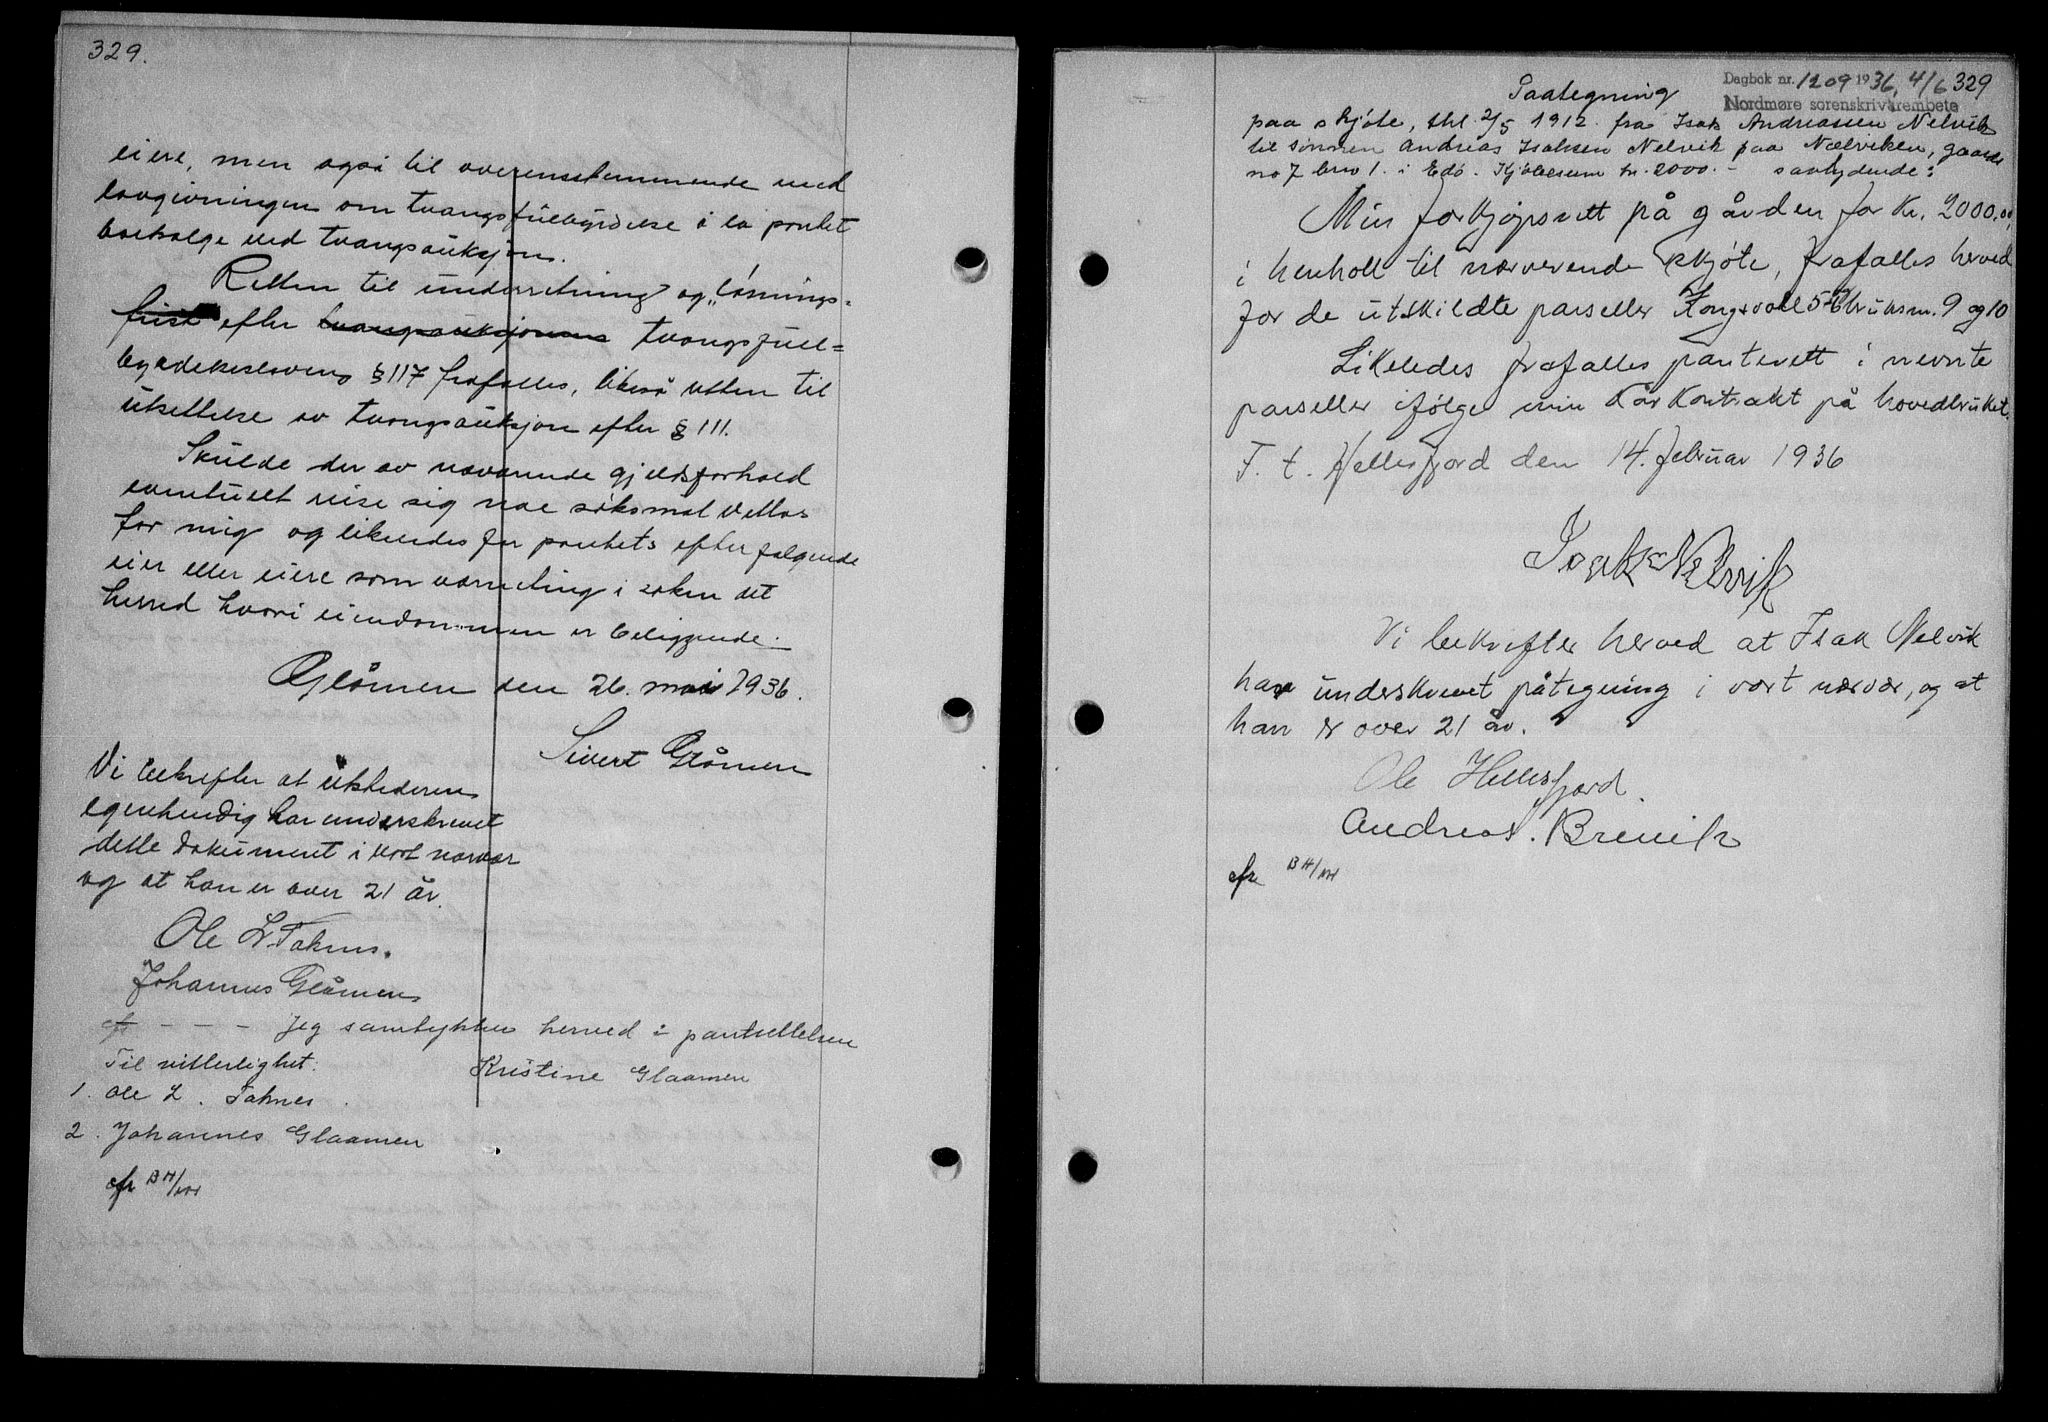 329.
eiere, men også til overensstemmende med
lovgivningen om tvangsfuldbyrdelse å la pantet
bortselge ved tvangsauksjon.
Retten til underretning og "løsnings-
frist efter tvangsauksjonens tvangsfull=
byrdelseslovens § 117 frafalles, likeså retten til
utsettelse av tvangsauksjon efter § 111.
Skulde der av nærværende gjeldsforhold
eventuelt reise sig noe søksmål vedtas
for mig og likeledes for pantets efterfølgende
eier eller eiere som verneting i saken det
herred hvori eiendommen er beliggende.
Glåmen den 26. mai 1936.
Sivert Glåmen
Vi bekrefter at utstederen
egenhendig har underskrevet
dette dokument i vort nærvær
og at han er over 21 år.
Ole L. Taknes.
Johannes Glåmen
efr - - - Jeg samtykker herved i pantsettelsen
Til vitterlighet: Kristine Glaamen
1. Ole L. Taknes.
2. Johannes Glaamen
efr BH/
Dagbok nr. 1209 1936, 4/6 329
Nordmøre sorenskriverembete
Paategning
paa skjøte, thl. 2/5 1912 fra Isak Andreassen Nelvik
til sønnen Andreas Isaksen Nelvik paa Nælviken, gaards
no 7 brno 1. i Edø. Kjøbesum kr. 2000.- saalydende:
Min forkjøpsrett på gården for Kr. 2000,00,
i henhold til nærverende skjøte, frafalles herved
for de utskildte parseller Kongsvoll bruksnr. 9 og 10
Likeledes frafalles panterett i nevnte
parseller ifølge min Kårkontrakt på hovedbruket.
F. t. Hellesfjord den 14. februar 1936
Isak Nelvik
Vi bekrefter herved at Isak Nelvik
har underskrevet påtegning i vort nærvær, og at
han er over 21 år.
Ole Hellesfjord.
Andreas. Brevik
efr BH/